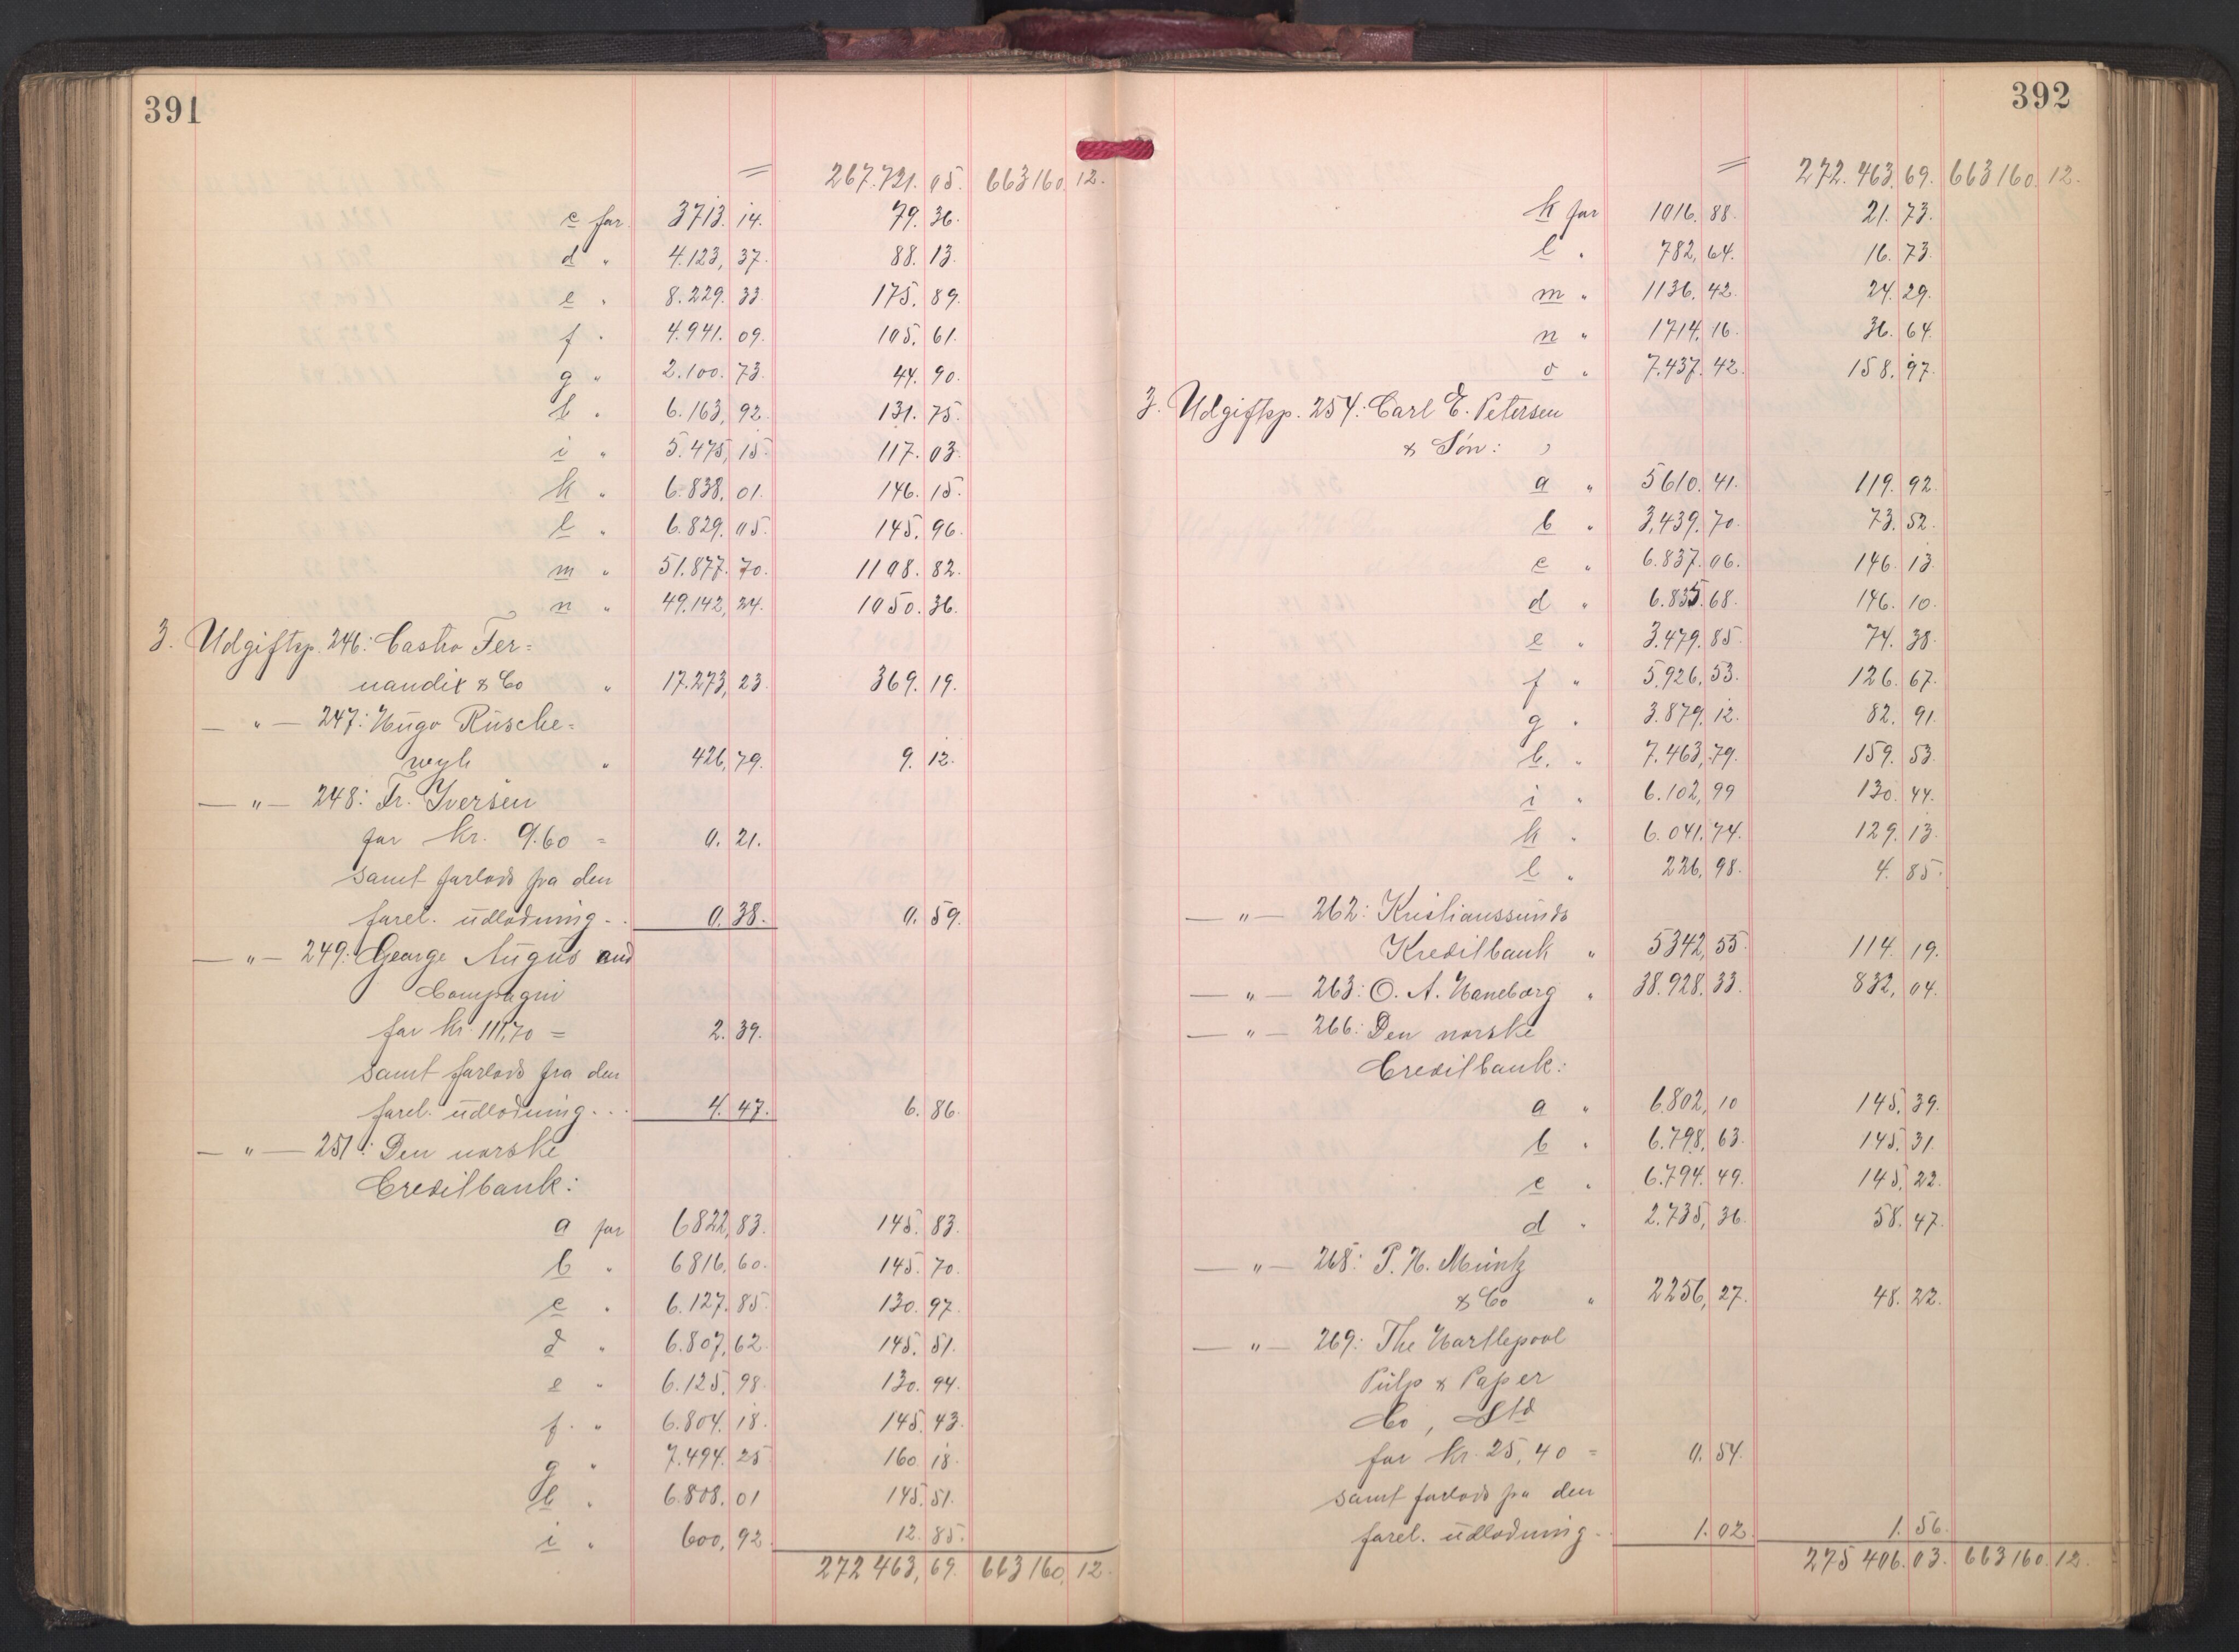 391
= 267.721.05. 663160.12.
c for 3713.14. 79.36.
d " 4.123,37. 88.13.
e " 8.229.33. 175.89.
f " 4.941.09. 105.61.
g " 2.100.73. 44.90.
h " 6.163,92. 131.75.
i " 5.475,15. 117.03.
k " 6.838,01. 146.15.
l " 6.829.05. 145.96.
m " 51.877.70. 1108.82.
n " 49.142,24. 1050.36.
3. Udgiftsp. 246: Castro Fer=
nandix & Co " 17.273,23. 369.19.
— " — 247: Hugo Rüsche=
weyh " 426,79. 9.12.
— " — 248: Fr. Iversen
for Kr. 9.60 = 0.21.
samt forlods fra den
forel. udlodning.. 0.38. 0.59.
— " — 249: George Angus and
Compagni
for Kr. 111,70 = 2.39.
samt forlods fra den
forel. udlodning... 4.47. 6.86.
— " — 251: Den norske
Creditbank:
a for 6822,83. 145.83.
b " 6816,60. 145.70.
c " 6.127.85. 130.97.
d " 6.807,62. 145.51.
e " 6.125,98. 130.94.
f. " 6.804.18. 145.43.
g " 7.494.25. 160.18.
h " 6.808.01 145.51.
i " 600,92. 12.85.
272463,69. 663160,12.
392
= 272.463.69. 663160.12.
k for 1016.88. 21.73.
l " 782,64. 16.73.
m " 1136.42. 24.29.
n " 1714,16. 36.64.
o " 7.437.42. 158.97.
3. Udgiftsp. 254: Carl E. Petersen
& Søn:
a " 5610.41. 119.92.
b " 3,439.70. 73.52.
c " 6.837.06. 146.13.
d " 6.835.68. 146.10.
e " 3.479.85. 74.38.
f " 5.926,53. 126.67.
g " 3.879.12. 82.91.
h. " 7.463,79. 159.53.
i " 6.102,99 130.44.
k " 6.041.74. 129.13.
l " 226,98. 4.85.
— " — 262: Kristianssunds
Kreditbank " 5342,55. 114.19.
— " — 263: O. A. Haneborg " 38.928.33. 832,04.
— " — 266: Den norske
Creditbank:
a " 6.802,10 145.39.
b " 6.798,63. 145.31.
c " 6.794.49. 145.22.
d " 2.735,36. 58.47.
— " — 268: P. H. Müntz
& Co " 2256,27. 48.22.
— " — 269: The Hartlepool
Pulp & Paper
Co, Ltd
for Kr. 25,40 = 0.54.
samt forlods fra den
forel. udlodning.. 1.02. 1.56.
275406.03. 663160.12.